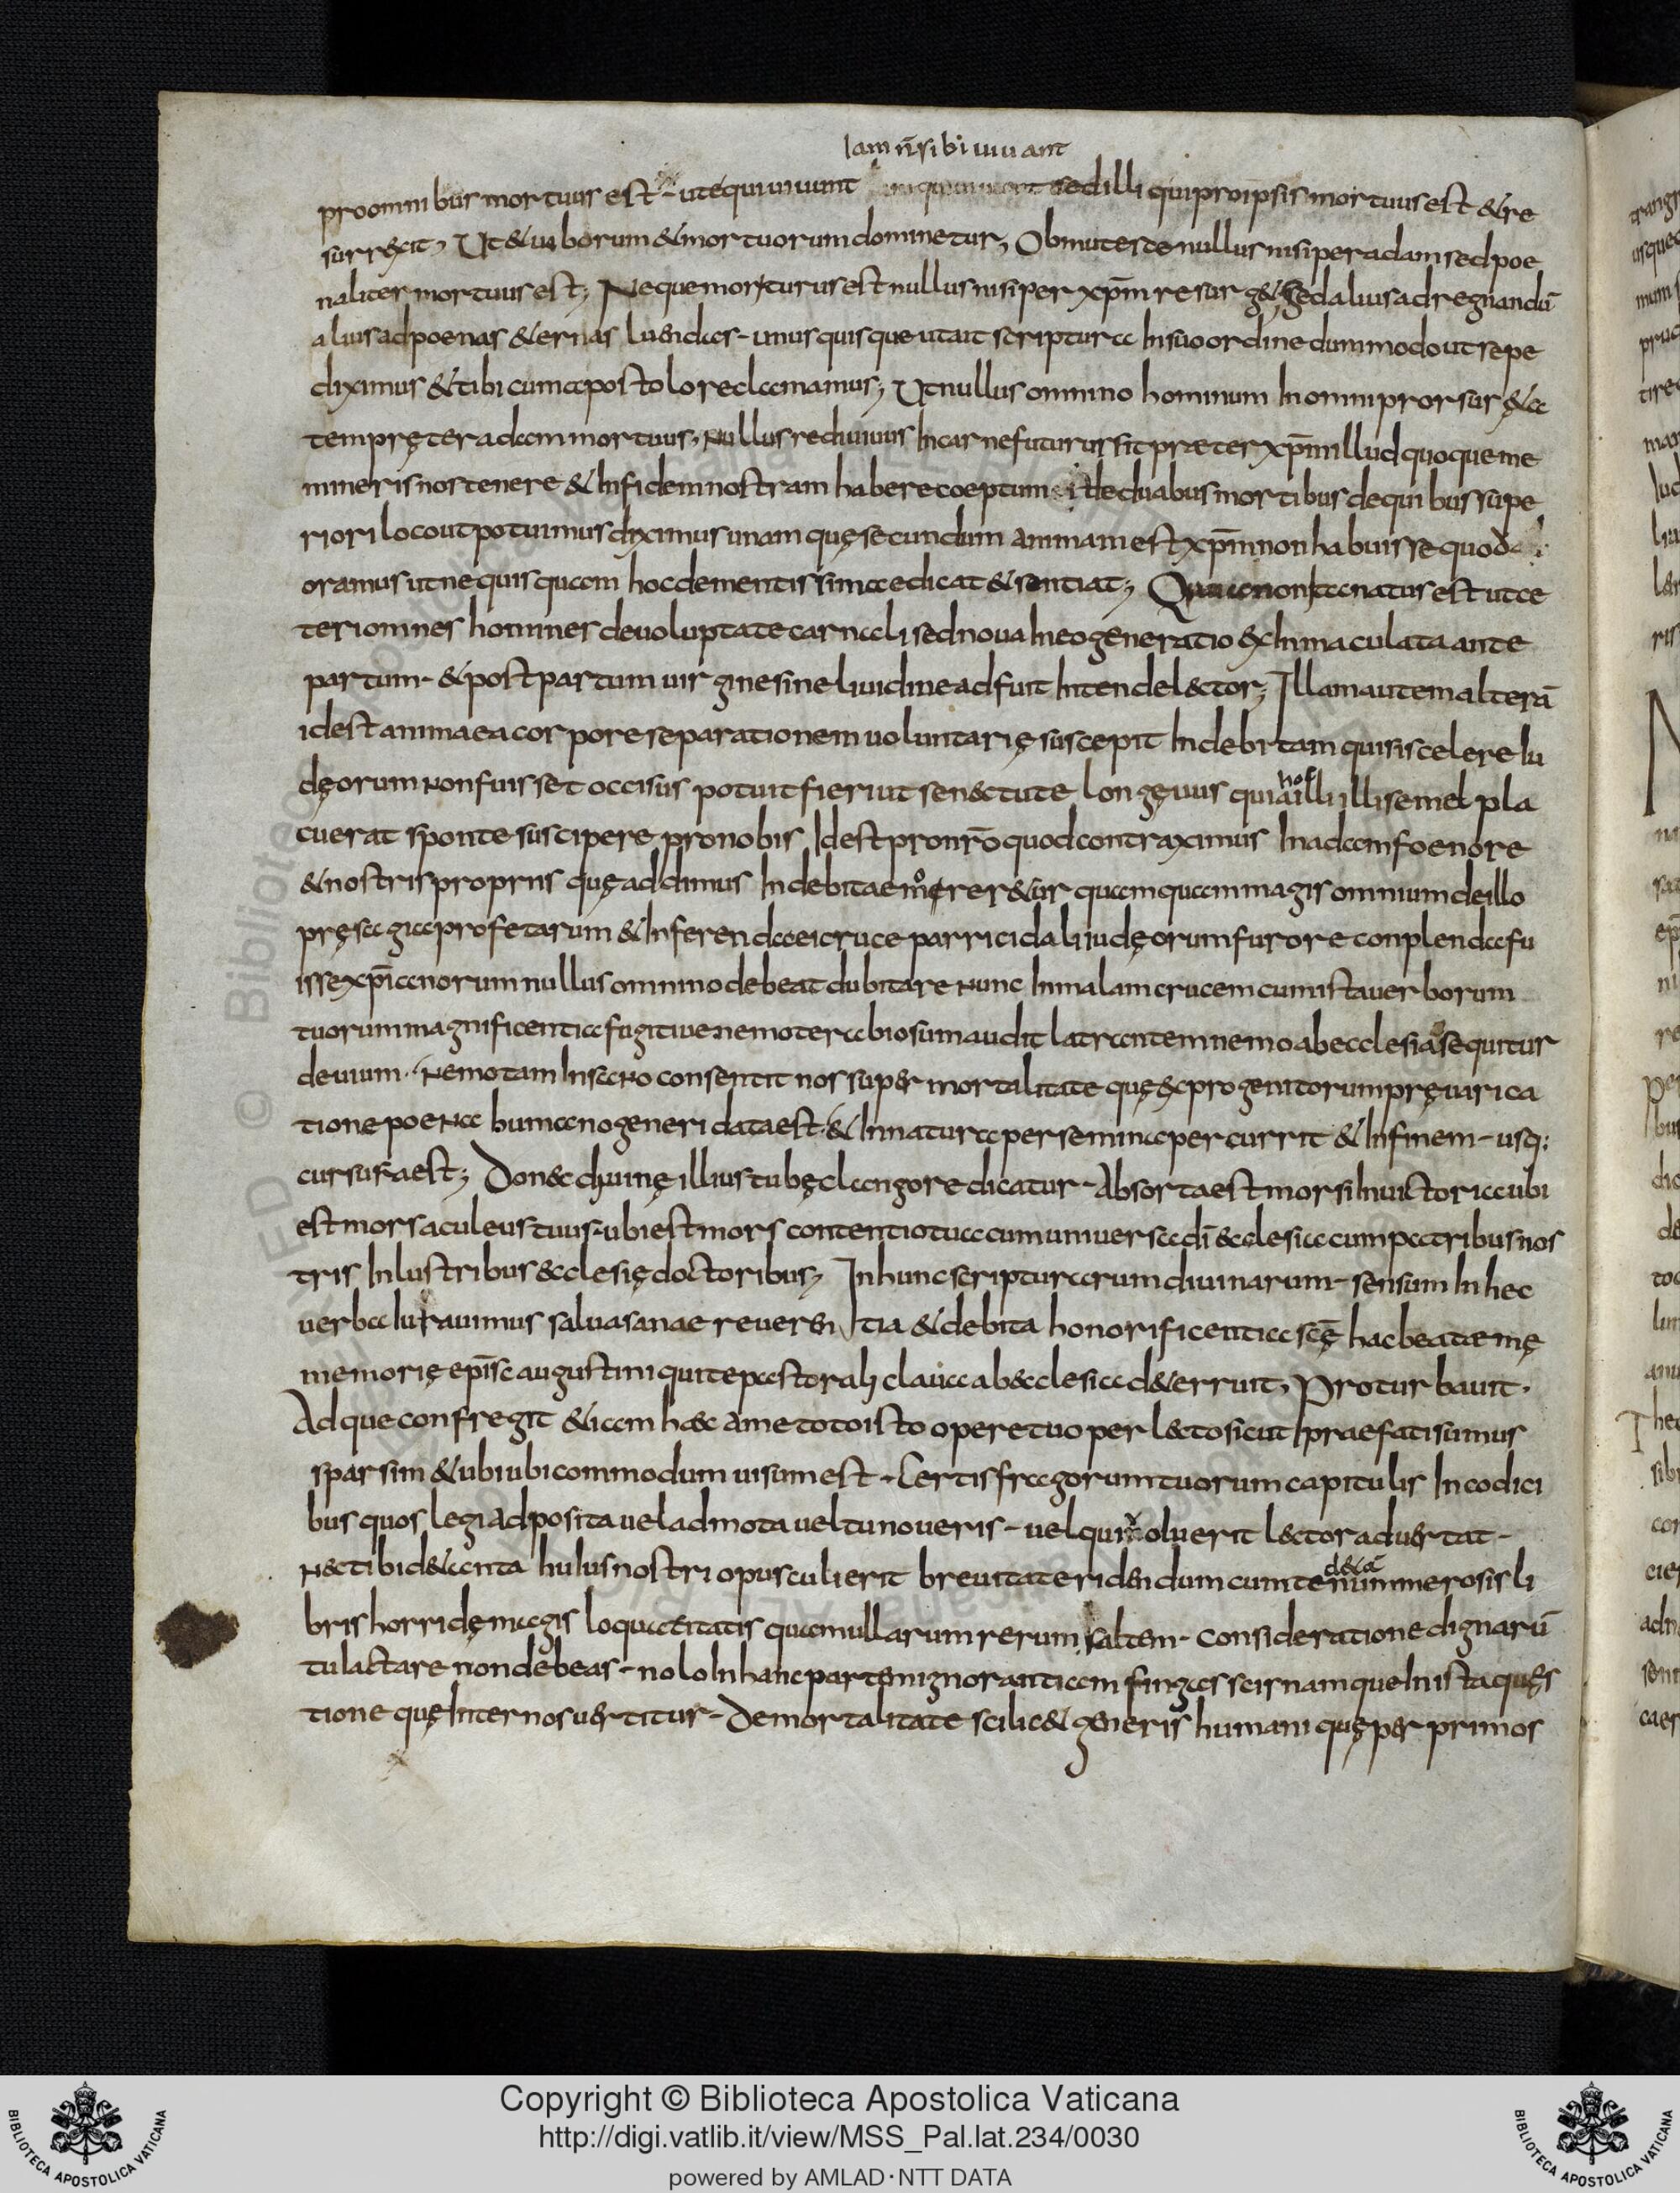 Iam n̄ sibi uiuant
pro omnibus mortuus est - ut & qui uiuunt sed illi qui pro ipsis mortuus est & re
surrexit, Ut & uiborum & mortuorum dominetur, Ob nullus nisi per adam sed poe
naliter mortuus est; Neque moriturus est nullus nisi per xp̄m resurg& sed alius ad regnandū
alius ad poenas &ernas luendas - unus quisque ut ait scriptura In suo ordine dum modo ut sepe
diximus & tibi cum apostolo reclamamus; Ut nullus omnino hominum In omni prorsus &a
tem pręter adam mortuus, nullus rediuiuus In carne futurus sit praeter xp̄m illud quoque me
mineris nos tenere & In fidem nostram habere coeptum de duabus mortibus de quibus supe
riori loco ut potuimus diximus unam quę secundum animam est xp̄m non habuisse quod
oramus ut ne quisquam hoc dementissima edicat & sentiat; non Ita natus est ut ce
teri omnes homines de uoluptate carnali sed noua In eo generatio ex Inmaculata ante
partum - & post partum uirgine sine liuidine adfuit Intende lector; Illam autem alterā
id est anima ea corpore separationem uoluntarię suscepit Indebitam qui si scelere Iu
dęorum non fuisset occisus potuit fieri ut senectute longęuus quia illi illi semel pla
cuerat sponte suscipere pro nobis Id est pro nr̄o quod contraximus In adam foenore
& nostris propriis quę addimus Indebitae quam quam magis omnium de illo
pręsagia profetarum & Inferenda ei cruce parricidali iudęorum furore conplenda fu
isse xp̄ianorum nullus omnino debeat dubitare nunc In malam crucem cum ista uerborum
tuorum magnificentia fugitiue nemo te rabiosum audit latrantem nemo ab ecclesia sequitur
deuium · Nemo tam Insano consentit nos super mortalitate quę ex progenitorum pręuarica
tione poena humano generi data est · & In natura per semina percurrit & In finem - usq;
cursura est; Donec diuinę illius tubę clangore dicatur - Absorta est mors In uictoria ubi
est mors aculeus tuus - ubi est mors contentio tua cum uniuersa dī ecclesia cum patribus nos
tris Inlustribus ecclesię doctoribus; In hunc scripturarum diuinarum - sensum In hec
uerba Iurauimus salua sanae reuerentia & debita honorificentia scę̄ hac beatae mę
memorię epīsc augustini qui te pastorali claua ab ecclesia d&erruit, Proturbauit ·
Adque confregit & iam haec a me toto isto opere tuo perlecto sicut praefati sumus
sparsim & ubi ubi commodum uisum est - Certis fragorum tuorum capitulis In codici
bus quos legi adposita uel admota uel tu noueris - uel qui uoluerit lector aduertat -
nec tibi d&anta huius nostri opusculi erit breuitate ridendum cum te nummerosis li
bris horridę magis loquacitatis quam ullarum rerum saltem - consideratione dignarū
tu iactare non debeas - nolo In hanc partem ignorantiam fingas scis namque In ista quęs
tione quę Inter nos uertitur - De mortalitate scilic& generis humani quę per primos
Copyright © Biblioteca Apostolica Vaticana
http://digi.vatlib.it/view/MSS_Pal.lat.234/0030
powered by AMLAD·NTT DATA
BIBLIOTECA APOSTOLICA VATICANA
BIBLIOTECA APOSTOLICA VATICANA